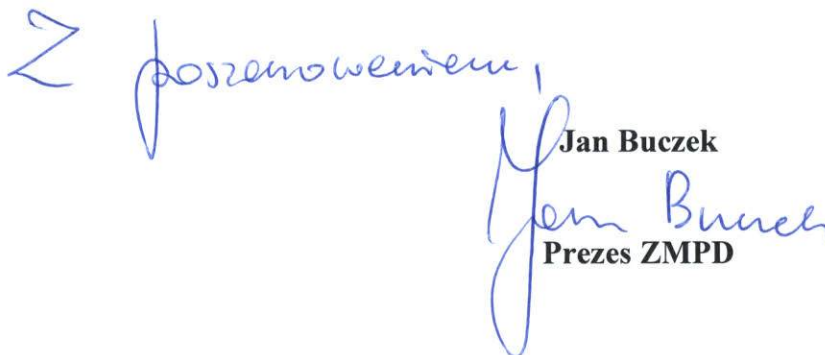 Z poszanowaniem,
Jan Buczek
Jan Buczek
Prezes ZMPD